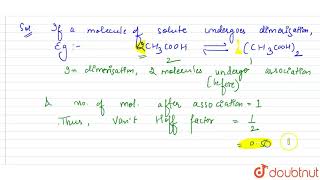 Sol If a molecule of solute undergoes dimerisation,
Eg :- 2CH3COOH ⇌ (CH3COOH)2
2 1
In dimerisation, 2 molecules undergo association
(before)
& no. of mol. after association = 1
Thus, van't Hoff factor = 1/2
= 0.50
doubtnut